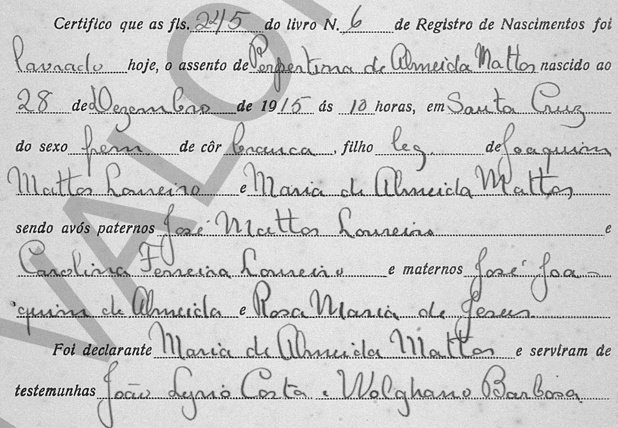 Certifico que as fls. 245 do livro N. 6 de Registro de Nascimentos foi
lavrado hoje, o assento de Perpertina de Almeida Mattos nascido ao
28 de Dezembro de 1915 ás 10 horas, em Santa Cruz
do sexo fem de côr branca, filho leg de Joaquim
Mattos Loureiro e Maria de Almeida Mattos
sendo avós paternos José Mattos Loureiro e
Carolina Ferreira Loureiro e maternos José Joa-
quim de Almeida e Rosa Maria de Jesus
Foi declarante Maria de Almeida Mattos e serviram de
testemunhas João Lyrio Costa e Wolghano Barbosa
VALO